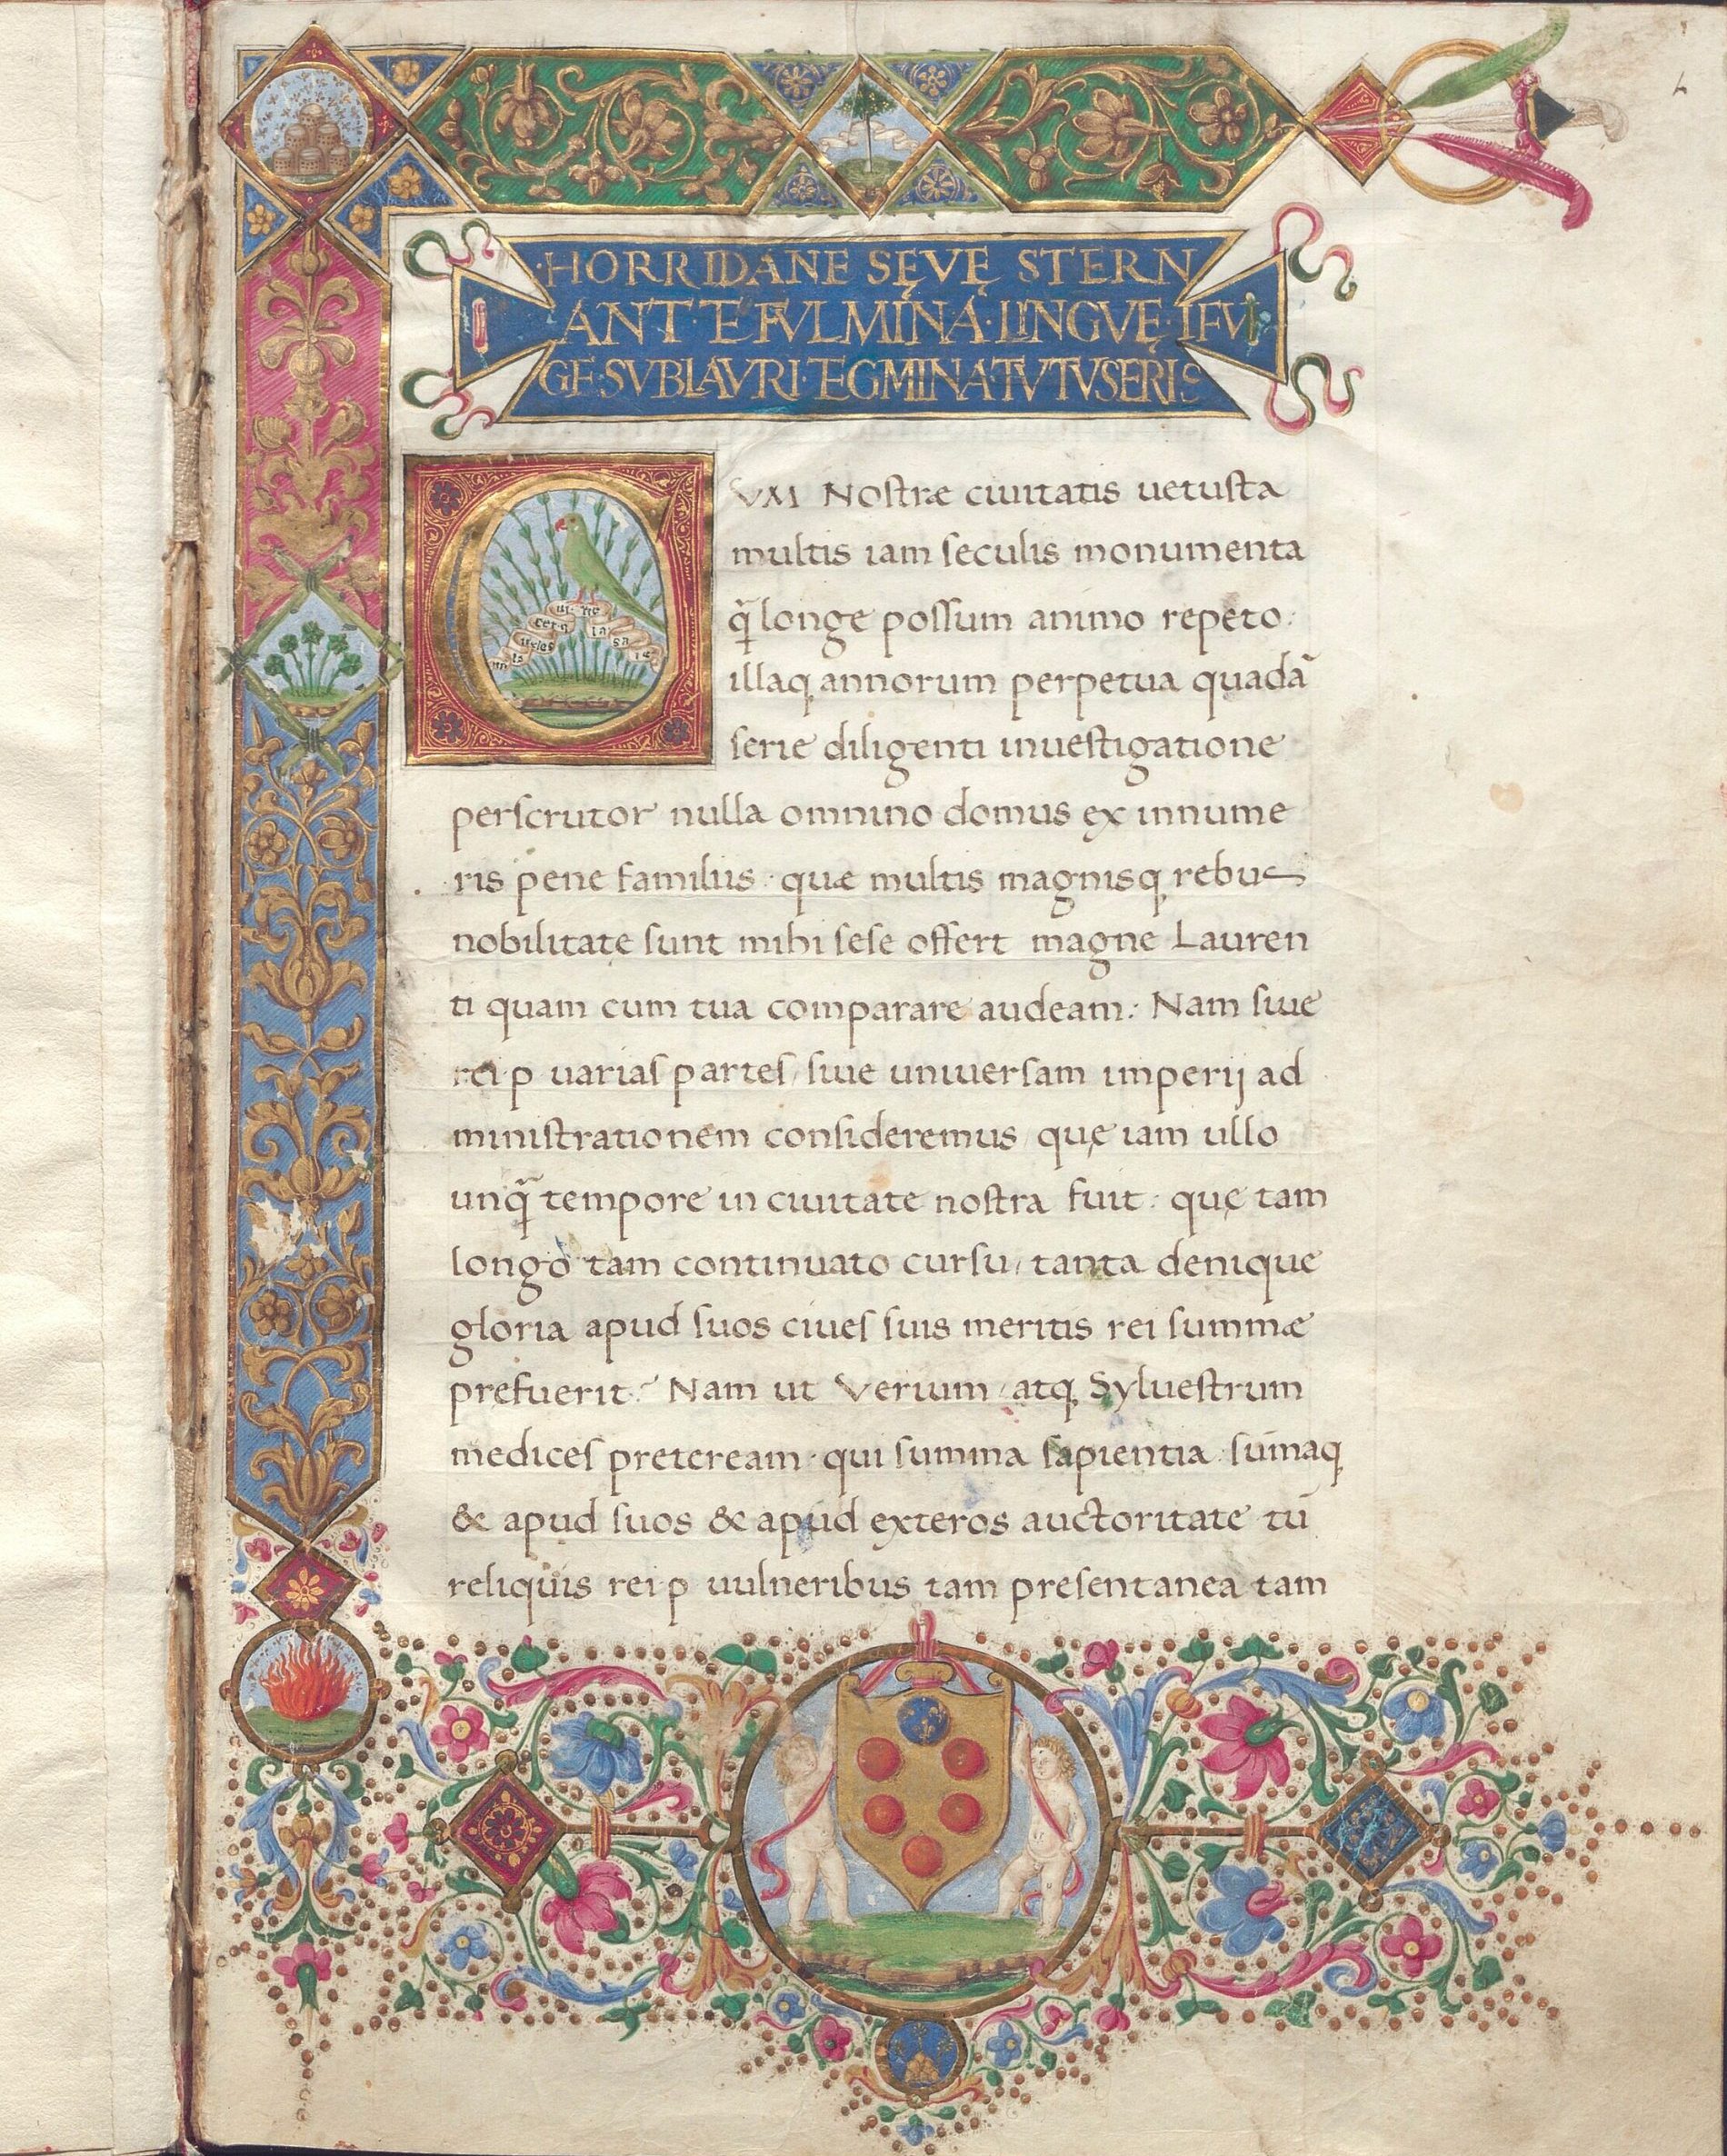 ·HORRIDANE SĘVĘ STERN
ANT·TE FVLMINA·LINGVĘ·I FV
GE·SVB LAVRI·TEGMINA TVTVS ERIS
CVM Nostræ ciuitatis uetusta
multis iam seculis monumenta
q̃ longe possum animo repeto:
illaq; annorum perpetua quadā
serie diligenti inuestigatione
perscrutor nulla omnino domus ex innume
ris pene familiis· quæ multis magnisq; rebus
nobilitatę sunt mihi sese offert magne Lauren
ti quam cum tua comparare audeam: Nam siue
rei p uarias partes/ siue uniuersam imperij ad
ministrationem consideremus/ quę iam ullo
unq̃ tempore in ciuitate nostra fuit: quę tam
longo tam continuato cursu/ tanta denique
gloria apud suos ciues suis meritis rei summæ
prefuerit? Nam ut Verium/ atq; Syluestrum
medices preteream· qui summa sapientia sūmaq;
& apud suos & apud exteros auctoritate tū
reliquis rei p uulneribus tam presentanea tam